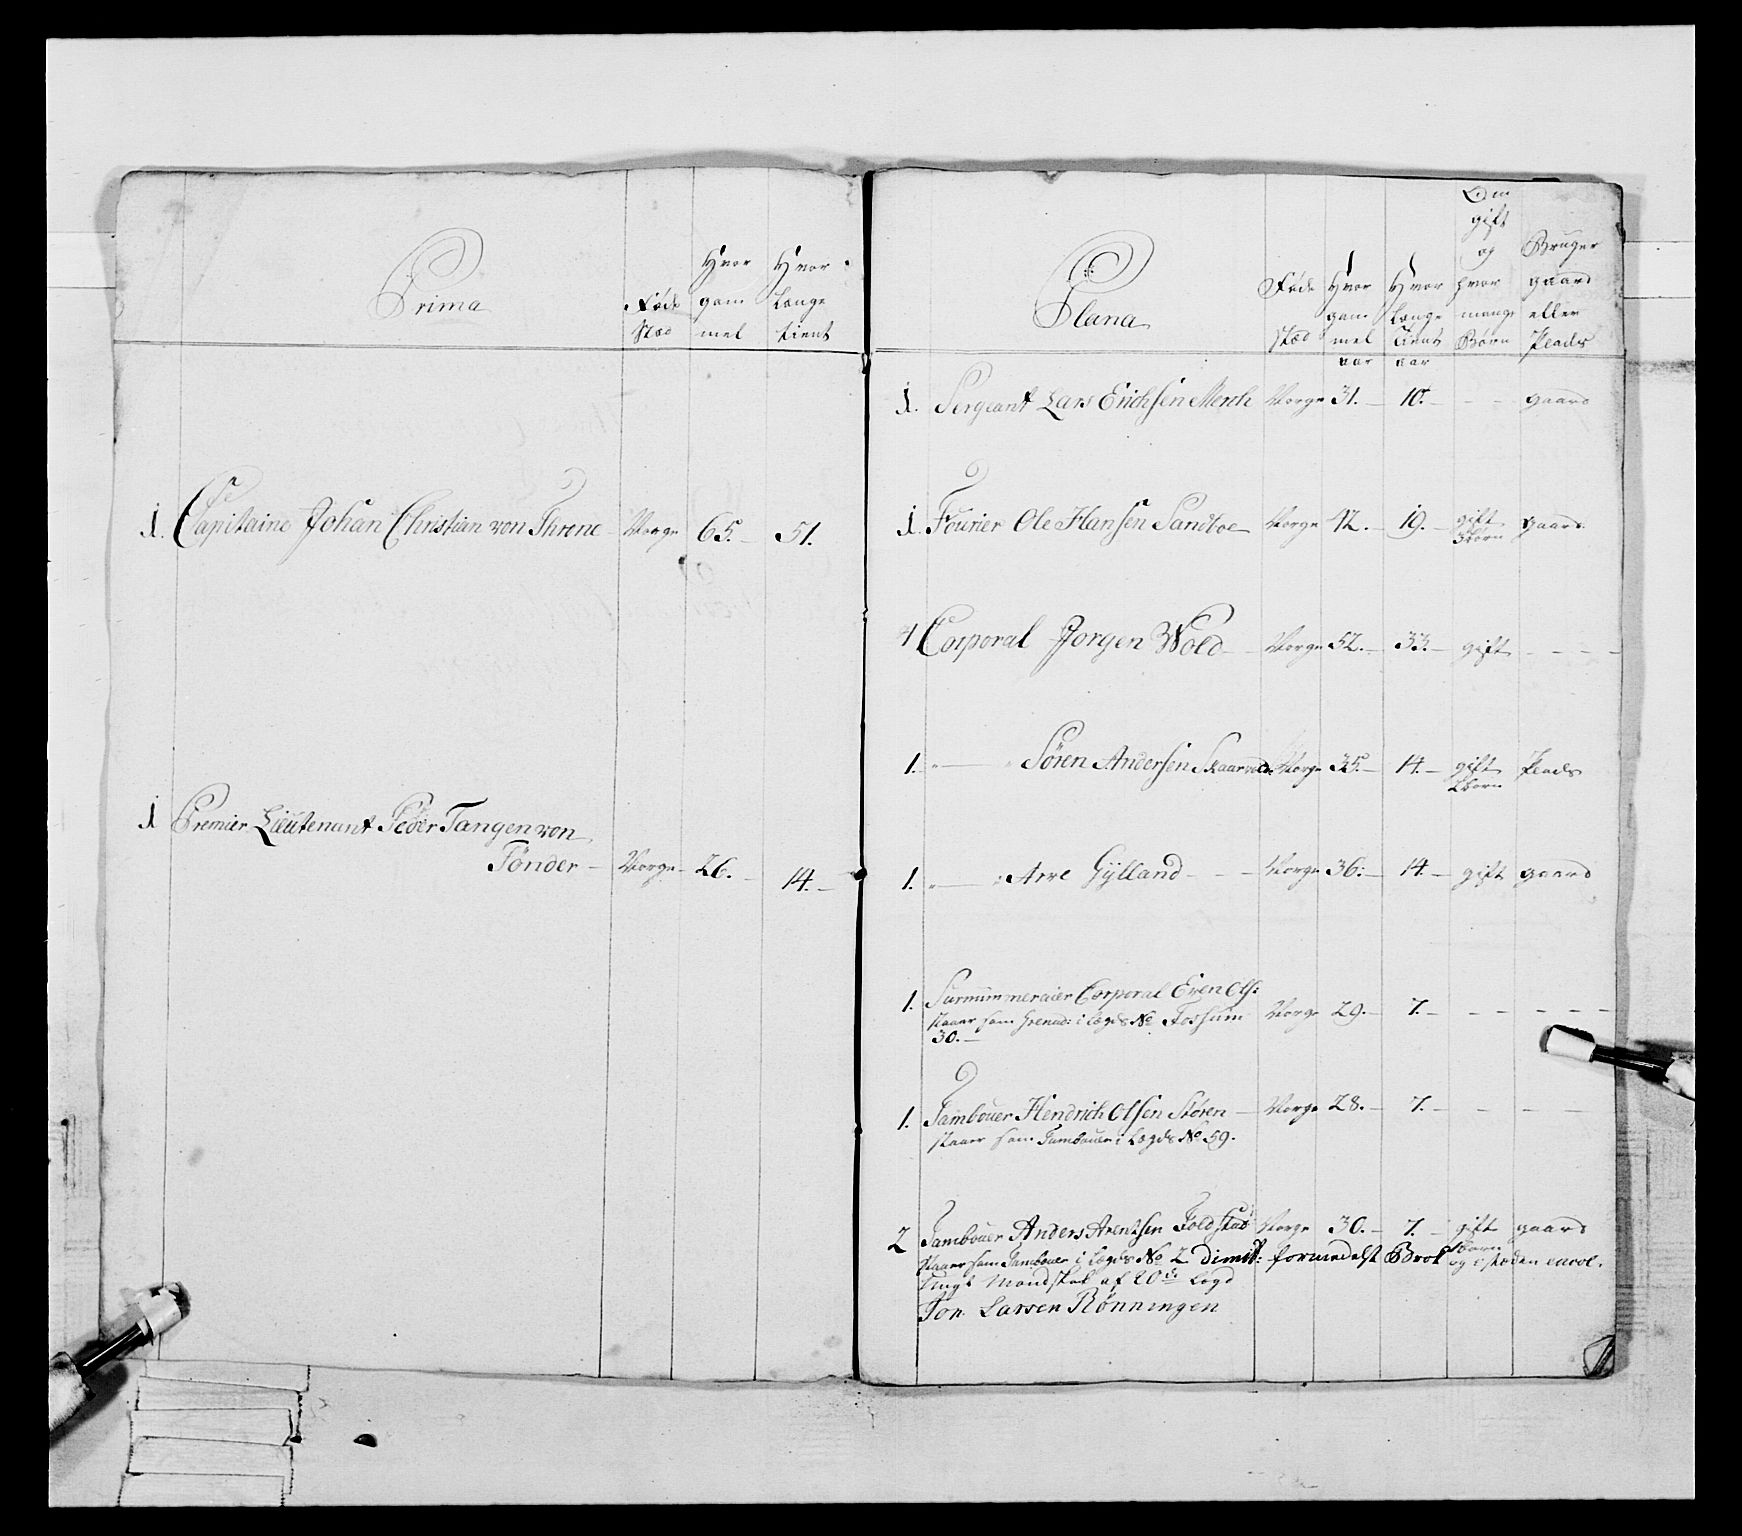 Prima
Føde Stæd
Hvor gam mel
Hvor Længe tient
1. Capitaine Johan Christian von Throne Norge 65. 51.
1 Premier Lieutenant Peder Tangen von
Tønder Norge 26. 14.
Plana
Føde stæd
Hvor gam mel aar
Hvor Længe Tient aar
Om gift og hvor mange Børn
Bruger gaard eller Plads
1. Sergeant Lars Erichsen Merch Norge 31. 10. gaard
1. Fourier Ole Hansen Sandboe Norge 42. 19. gift gaard
3 børn
1 Corporal Jørgen Wold Norge 52. 33. gift
1. Søren Andersen Skaarvold Norge 35. 14. gift Plads
2 børn
1. Arve Gÿlland Norge 36. 14. gift gaard
1. Surnummeraier Corporal Even Ols:
staaer som Grenad: i Lægds No Fossum Norge 29. 7.
30.
1. Tambouer Hendrich Olsen Støren Norge 28. 7.
staaer som Tambouer i Lægds No 59.
2 Tambouer Anders Arentsen Foldstad Norge 30. 7. gift gaard
børn
staaer som Tambouer i Lægds No 2 dimit: formedelst Brok og i stæden enrol.
Mandskab af 20de Lægd
Jon Larsen Rønningen